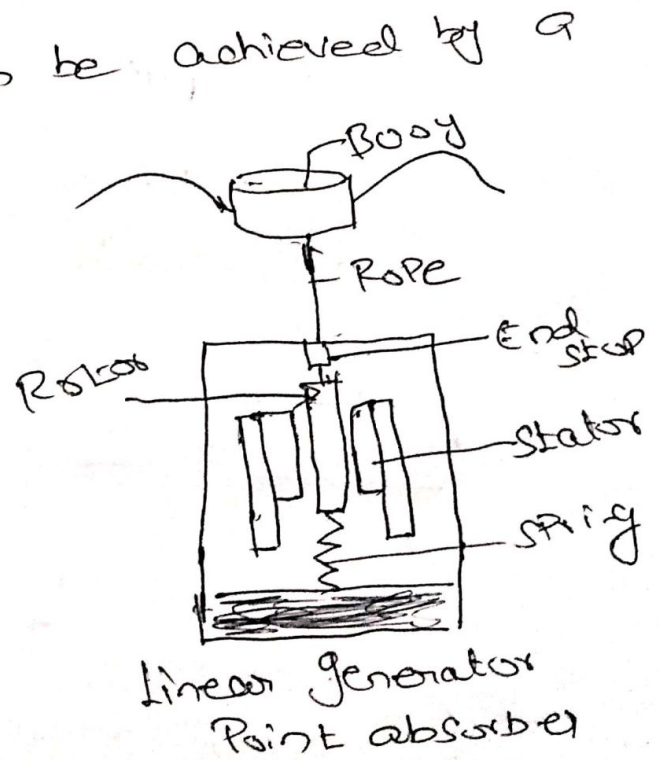 be achieved by a
Booy
Rope
End
stop
Rotor
Stator
Spring
Linear generator
Point absorber